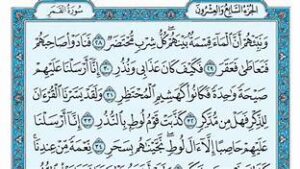 الجزء السابع والعشرون سورة القمر
وَنَبِّئْهُمْ أَنَّ ٱلْمَآءَ قِسْمَةٌۢ بَيْنَهُمْ كُلُّ شِرْبٍ مُّحْتَضَرٌ ٢٨ فَنَادَوْا۟ صَاحِبَهُمْ
فَتَعَاطَىٰ فَعَقَرَ ٢٩ فَكَيْفَ كَانَ عَذَابِى وَنُذُرِ ٣٠ إِنَّآ أَرْسَلْنَا عَلَيْهِمْ
صَيْحَةً وَٰحِدَةً فَكَانُوا۟ كَهَشِيمِ ٱلْمُحْتَظِرِ ٣١ وَلَقَدْ يَسَّرْنَا ٱلْقُرْءَانَ
لِلذِّكْرِ فَهَلْ مِن مُّدَّكِرٍ ٣٢ كَذَّبَتْ قَوْمُ لُوطٍۭ بِٱلنُّذُرِ ٣٣ إِنَّآ أَرْسَلْنَا
عَلَيْهِمْ حَاصِبًا إِلَّآ ءَالَ لُوطٍ نَّجَّيْنَٰهُم بِسَحَرٍ ٣٤ نِّعْمَةً مِّنْ عِندِنَا